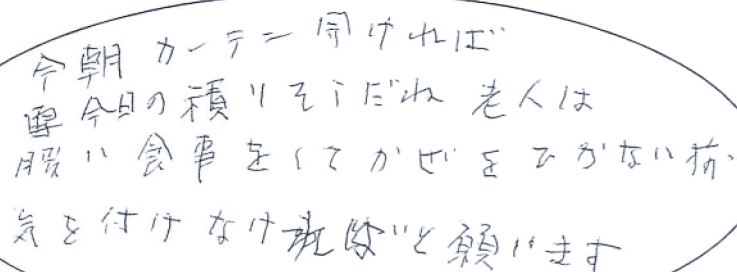 今朝カーテン開ければ
雪今日の積りそうだね 老人は
暖い食事をしてかぜをひかない様
気を付けなければと願います